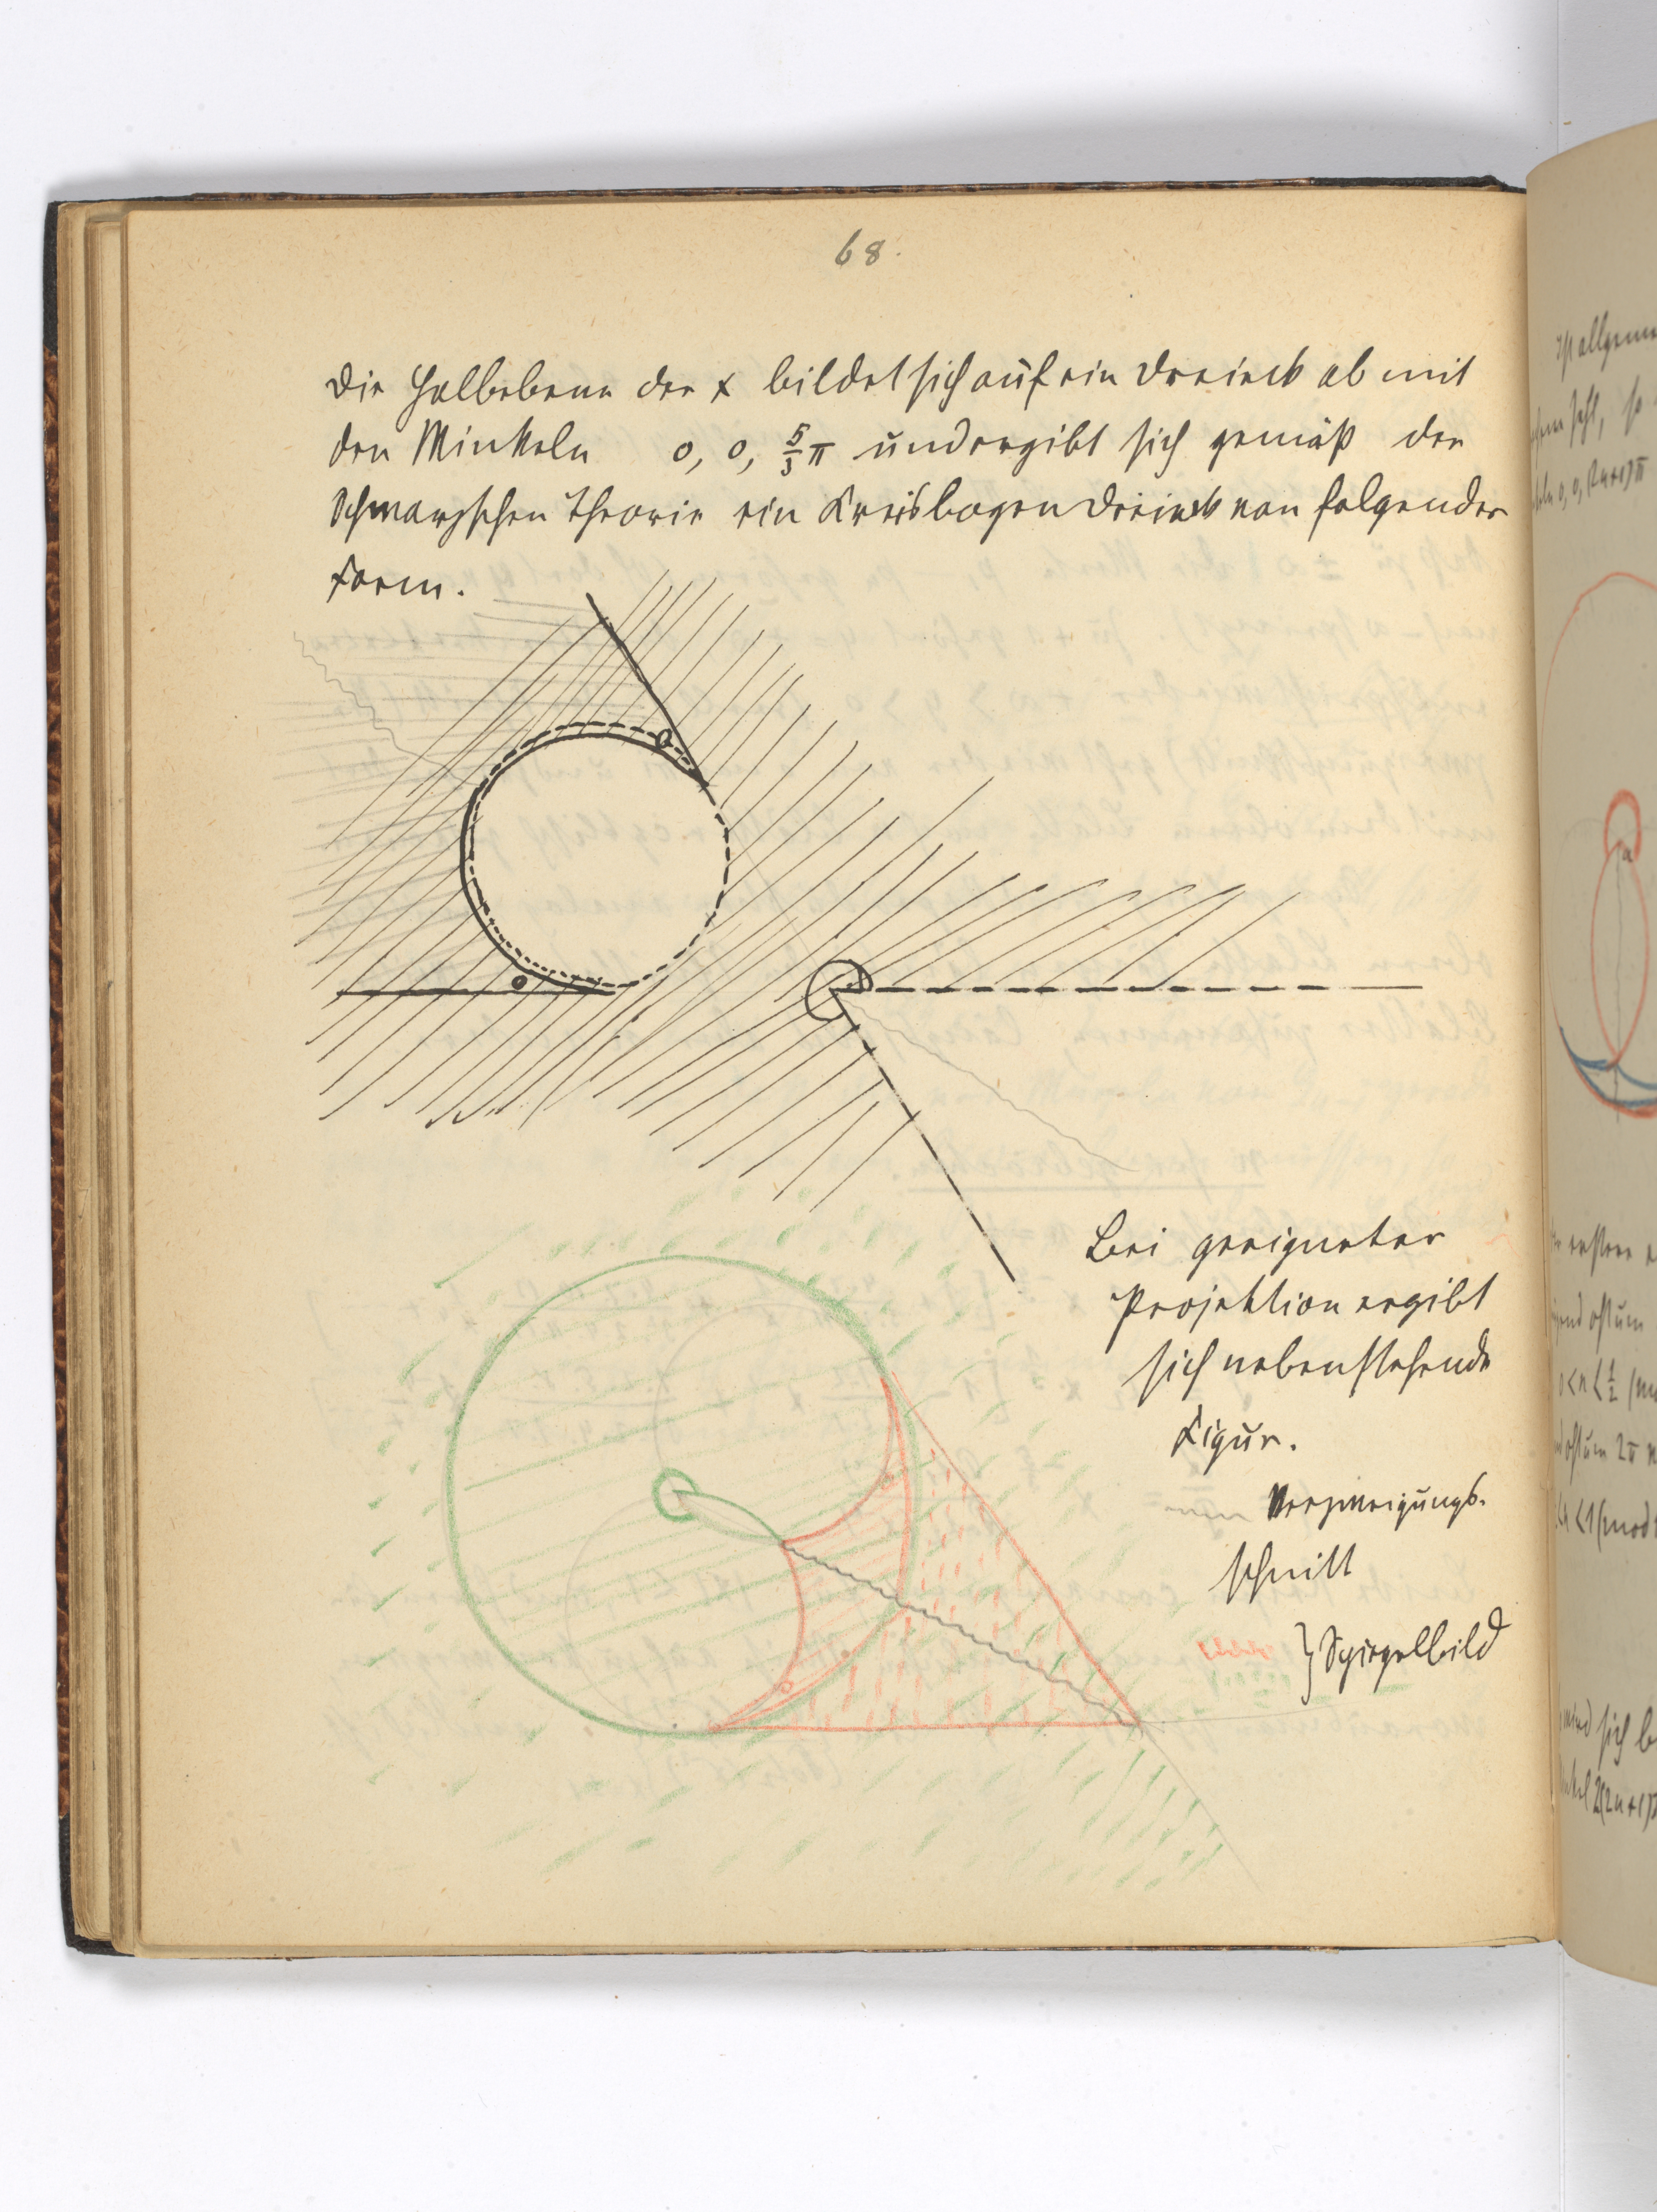 68.
Die Halbebene der x bildet sich auf ein Dreieck ab mit
den Winkeln 0, 0, 5/3 π und ergibt sich gemäß der
Schwarzschen Theorie ein Kreisbogendreieck von folgender
Form.
0
0
Bei geeigneter
Projektion ergibt
sich nebenstehende
Figur.
Verzweigungs-
schnitt
} Spiegelbild
0
0